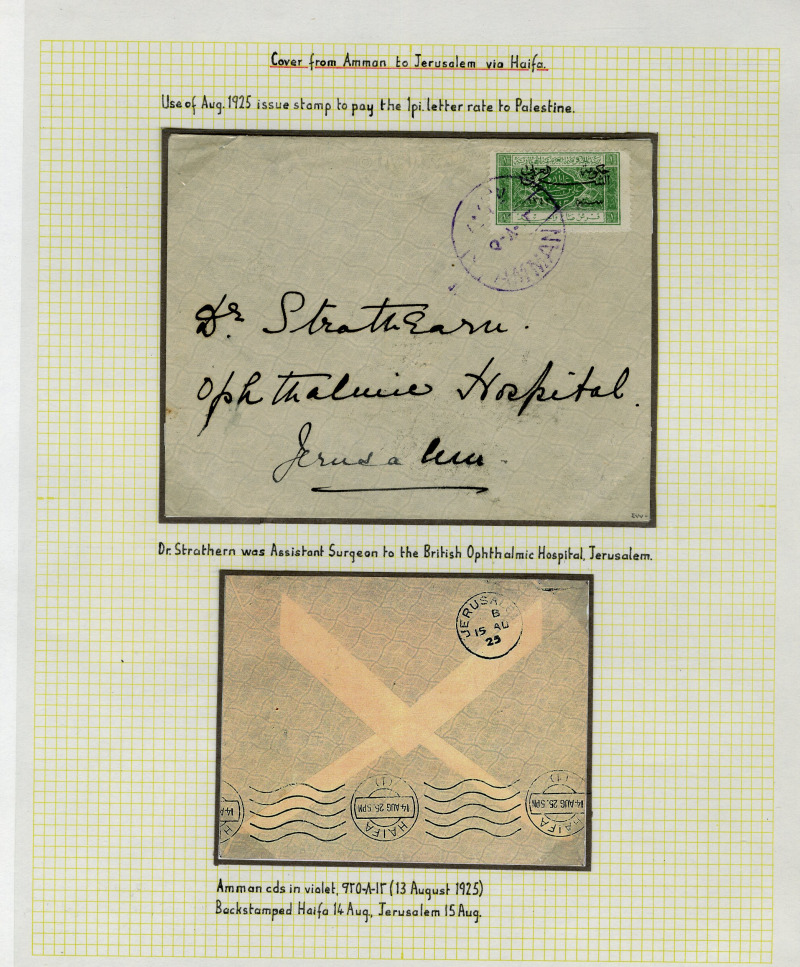 Cover from Amman to Jerusalem via Haifa.
Use of Aug. 1925 issue stamp to pay the 1pi. letter rate to Palestine.
AMMAN
Dr. Strathearn.
Ophthalmic Hospital.
Jerusalem.
Dr. Strathern was Assistant Surgeon to the British Ophthalmic Hospital, Jerusalem.
JERUSALEM
B
15 AU
25
(1)
14 AUG 25. 5PM
HAIFA
(1)
14 AUG 25. 5PM
HAIFA
Amman cds in violet, ٩٢٥-٨-١٣ (13 August 1925)
Backstamped Haifa 14 Aug., Jerusalem 15 Aug.